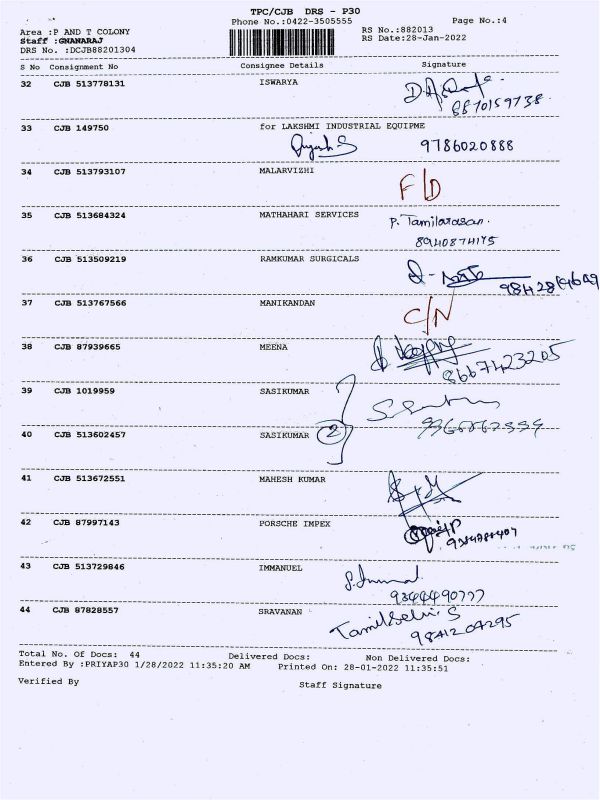 TPC/CJB DRS - P30
Phone No.:0422-3505555 Page No.:4
Area :P AND T COLONY RS No.:882013
Staff :GNANARAJ RS Date:28-Jan-2022
DRS No. :DCJB88201304
S No Consignment No Consignee Details Signature
32 CJB 513778131 ISWARYA
8870159738
33 CJB 149750 for LAKSHMI INDUSTRIAL EQUIPME
9786020888
34 CJB 513793107 MALARVIZHI F/D
35 CJB 513684324 MATHAHARI SERVICES P. Tamilarasan.
8940874175
36 CJB 513509219 RAMKUMAR SURGICALS
37 CJB 513767566 MANIKANDAN C/N
38 CJB 87939665 MEENA
8667423205
39 CJB 1019959 SASIKUMAR
40 CJB 513602457 SASIKUMAR 2
41 CJB 513672551 MAHESH KUMAR
42 CJB 87997143 PORSCHE IMPEX
43 CJB 513729846 IMMANUEL
9344490777
44 CJB 87828557 SRAVANAN Tamilselvi. S
9841204295
Total No. Of Docs: 44 Delivered Docs: Non Delivered Docs:
Entered By :PRIYAP30 1/28/2022 11:35:20 AM Printed On: 28-01-2022 11:35:51
Verified By Staff Signature